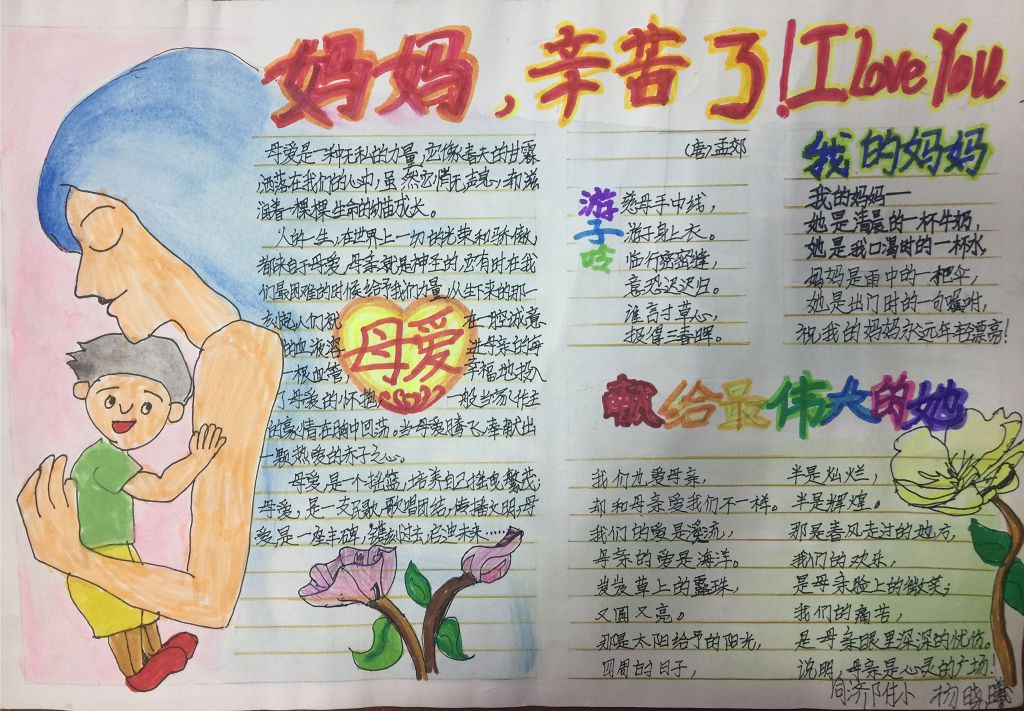 妈妈，辛苦了！I love You
母爱是一种无私的力量，它像春天的甘霖，
洒落在我们的心中，虽然它悄无声息，却滋
润着一棵棵生命的幼苗成长。
人的一生，在世界上一切的光荣和骄傲，
都来自于母爱，母亲就是神圣的，还有时在我
们最困难的时候给予我们力量，从生下来的那一
刻起人们就
在一腔诚意
的血液溶
进母亲的每
一根血管，
幸福地扬入
了母爱的怀抱
一般当家作主
的豪情在胸中回荡。当母爱腾飞，奉献出
一颗热爱的赤子之心。
母爱是一个摇篮，培养自己摇曳繁茂；
母爱，是一支元歌，歌唱团结，传播文明，母
爱，是一座丰碑，镌刻过去，启迪未来……
母爱
（唐）孟郊
游子吟
慈母手中线，
游子身上衣。
临行密密缝，
意恐迟迟归。
谁言寸草心，
报得三春晖。
我的妈妈
我的妈妈—
她是清晨的一杯牛奶，
她是我口渴时的一杯水，
妈妈是雨中的一把伞，
她是出门时的一句嘱咐，
祝我的妈妈永远年轻漂亮！
献给最伟大的她
我们也爱母亲，
却和母亲爱我们不一样。
我们的爱是溪流，
母亲的爱是海洋。
岌岌草上的露珠，
又圆又亮。
那是太阳给予的阳光，
四周的日子，
半是灿烂，
半是辉煌。
那是春风走过的地方，
我们的欢乐，
是母亲脸上的微笑；
我们的痛苦，
是母亲眼里深深的忧伤。
说明，母亲是心灵的广场！
同济附小 杨晓曦